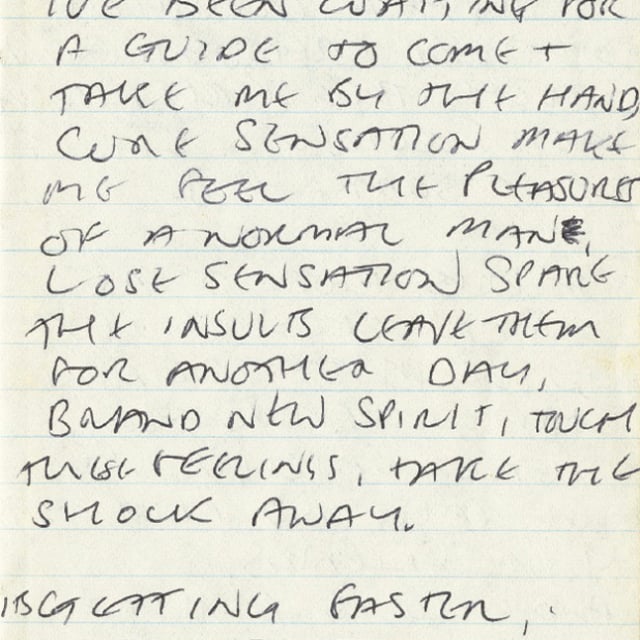 IVE BEEN WAITING FOR
A GUIDE TO COME +
TAKE ME BY THE HAND
CURE SENSATION MAKE
ME FEEL THE PLEASURES
OF A NORMAL MAN,
LOSE SENSATION SPARE
THE INSULTS LEAVE THEM
FOR ANOTHER DAY,
BRAND NEW SPIRIT, TOUCH
THESE FEELINGS, TAKE THE
SHOCK AWAY.
ITS GETTING FASTER,